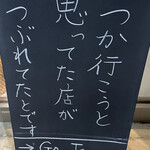 つか行こうと
思ってた店が
つぶれてたとです
→Go T